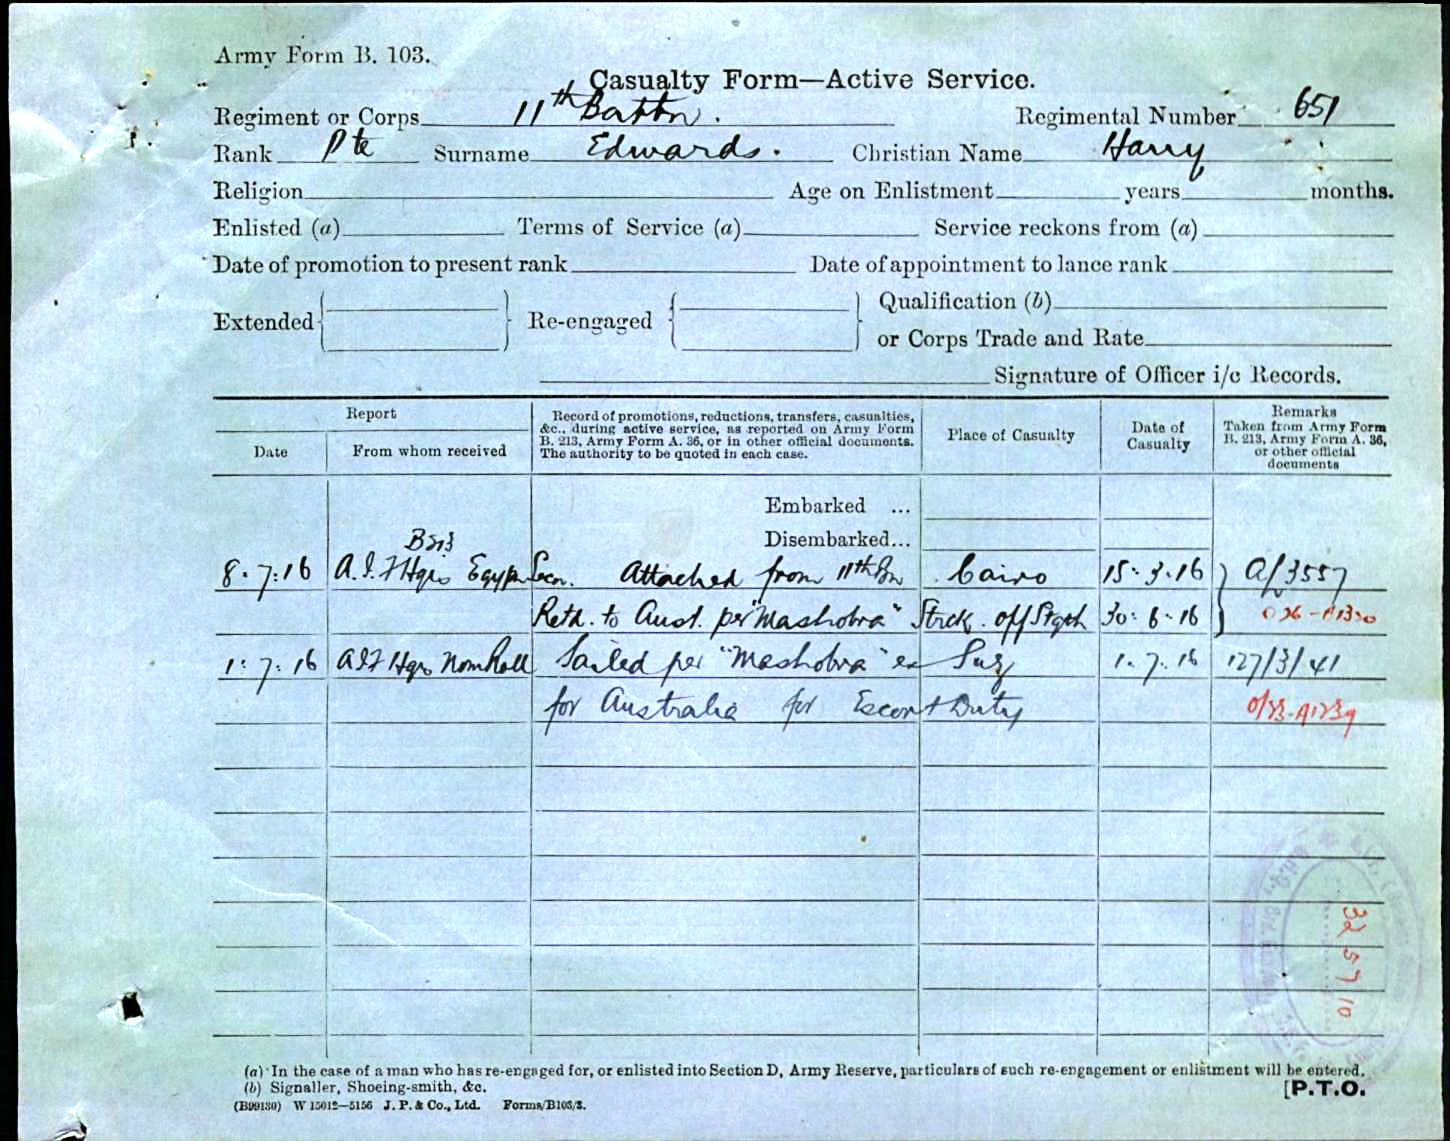 Army Form B. 103.
Casualty Form—Active Service.
Regiment or Corps 11th Battn. Regimental Number 651
Rank Pte Surname Edwards. Christian Name Harry
Religion Age on Enlistment years months.
Enlisted (a) Terms of Service (a) Service reckons from (a)
Date of promotion to present rank Date of appointment to lance rank
Extended Re-engaged Qualification (b)
or Corps Trade and Rate
Signature of Officer i/c Records.
Report
Date From whom received
Record of promotions, reductions, transfers, casualties,
&c., during active service, as reported on Army Form
B. 213, Army Form A. 36, or in other official documents.
The authority to be quoted in each case.
Place of Casualty
Date of
Casualty
Remarks
Taken from Army Form
B. 213, Army Form A. 36,
or other official
documents
Embarked ...
Disembarked...
8.7.16 A.I.F Hqrs Egypt Attached from 11th Bn Cairo 15.3.16 a/3557
Retd. to Aust. per "Mashobra" Strck. off Stgth 30.6.16
1.7.16 AIF Hqrs Nom Roll Sailed per "Mashobra" ex Suez 1.7.16 127/3/41
for Australia for Escort Duty
32 5710
(a) In the case of a man who has re-engaged for, or enlisted into Section D, Army Reserve, particulars of such re-engagement or enlistment will be entered.
(b) Signaller, Shoeing-smith, &c.
[P.T.O.
(B99130) W 15012—5156 J. P. & Co., Ltd. Forms/B103/3.